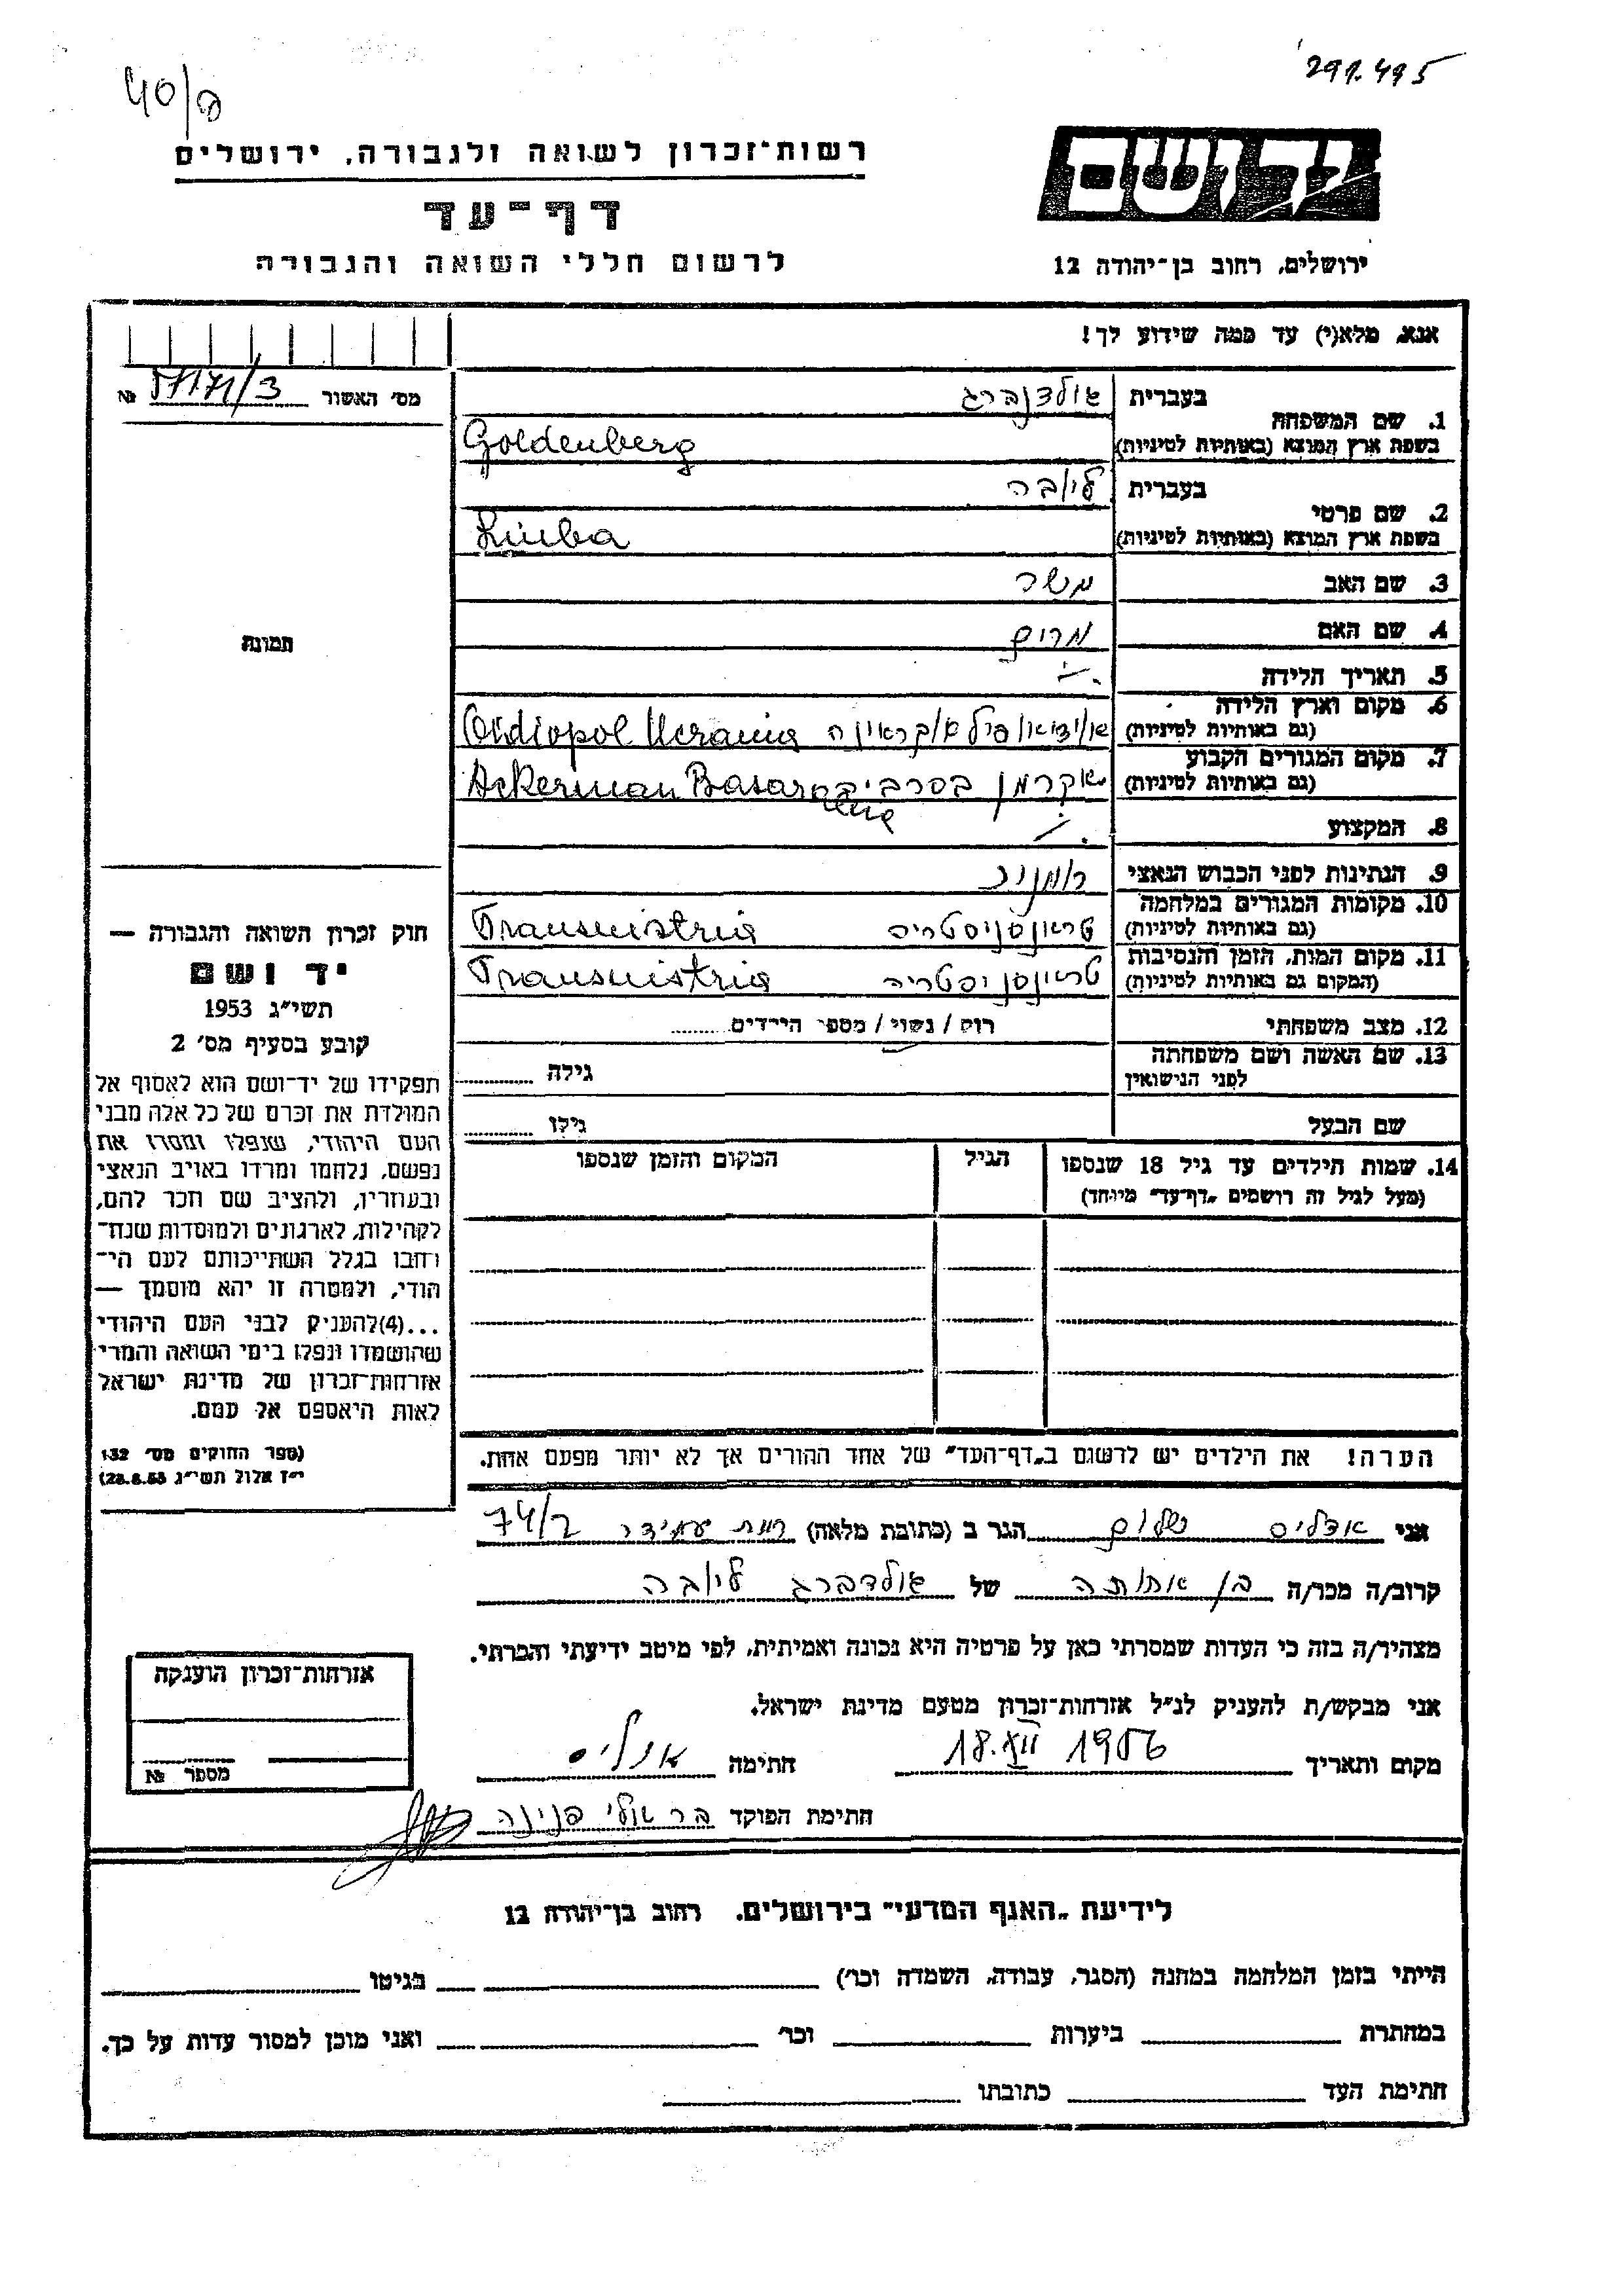 291.495
40/פ
רשות־זכרון לשואה ולגבורה, ירושלים
יד ושם
דף־עד
לרשום חללי השואה והגבורה
ירושלים, רחוב בן־יהודה 12
אנא, מלא(י) עד כמה שידוע לך!
מס' האשור 57171/3 №
1. שם המשפחה בעברית גולדנברג
בשפת ארץ המוצא (באותיות לטיניות) Goldenberg
2. שם פרטי בעברית ליובה
בשפת ארץ המוצא (באותיות לטיניות) Liuba
3. שם האב משה
4. שם האם מרים
תמונה
5. תאריך הלידה ./.
6. מקום וארץ הלידה
(גם באותיות לטיניות) אוידיאופול אוקראינה Ovidiopol Ucrania
7. מקום המגורים הקבוע
(גם באותיות לטיניות) אקרמן בסרביה Ackerman Basarabia
8. המקצוע ./.
9. הנתינות לפני הכבוש הנאצי רומנית
10. מקומות המגורים במלחמה
(גם באותיות לטיניות) טראנסניסטריה Transnistria
11. מקום המות, הזמן והנסיבות
(המקום גם באותיות לטיניות) טראנסניסטריה Transnistria
12. מצב משפחתי רוק / נשוי / מספר הילדים
13. שם האשה ושם משפחתה
לפני הנישואין גילה
שם הבעל גילו
14. שמות הילדים עד גיל 18 שנספו הגיל המקום והזמן שנספו
(מעל לגיל זה רושמים „דף־עד" מיוחד)
הערה! את הילדים יש לרשום ב„דף־העד" של אחד ההורים אך לא יותר מפעם אחת.
חוק זכרון השואה והגבורה —
יד ושם
תשי"ג 1953
קובע בסעיף מס' 2
תפקידו של יד־ושם הוא לאסוף אל
המולדת את זכרם של כל אלה מבני
העם היהודי, שנפלו ומסרו את
נפשם, נלחמו ומרדו באויב הנאצי
ובעוזריו, ולהציב שם וזכר להם,
לקהילות, לארגונים ולמוסדות שנח־
רחבו בגלל השתייכותם לעם הי־
הודי, ולמטרה זו יהא מוסמך —
...(4)להעניק לבני העם היהודי
שהושמדו ונפלו בימי השואה והמרי
אזרחות־זכרון של מדינת ישראל
לאות היאספם אל עמם.
(ספר החוקים מס' 132
י"ז אלול תשי"ג 28.8.53)
אני שלום הגר ב (כתובת מלאה) רמת עמידר 74/2
קרוב/ה מכר/ה בן אחותה של גולדברג ליובה
מצהיר/ה בזה כי העדות שמסרתי כאן על פרטיה היא נכונה ואמיתית, לפי מיטב ידיעתי והכרתי.
אני מבקש/ת להעניק לנ"ל אזרחות־זכרון מטעם מדינת ישראל.
מקום ותאריך 18.XII 1956 חתימה
חתימת הפוקד פנינה
אזרחות־זכרון הוענקה
מספר №
לידיעת „האגף המדעי" בירושלים, רחוב בן־יהודה 12
הייתי בזמן המלחמה במחנה (הסגר, עבודה, השמדה וכו') בגיטו
במחתרת ביערות וכו' ואני מוכן למסור עדות על כך.
חתימת העד כתובתו